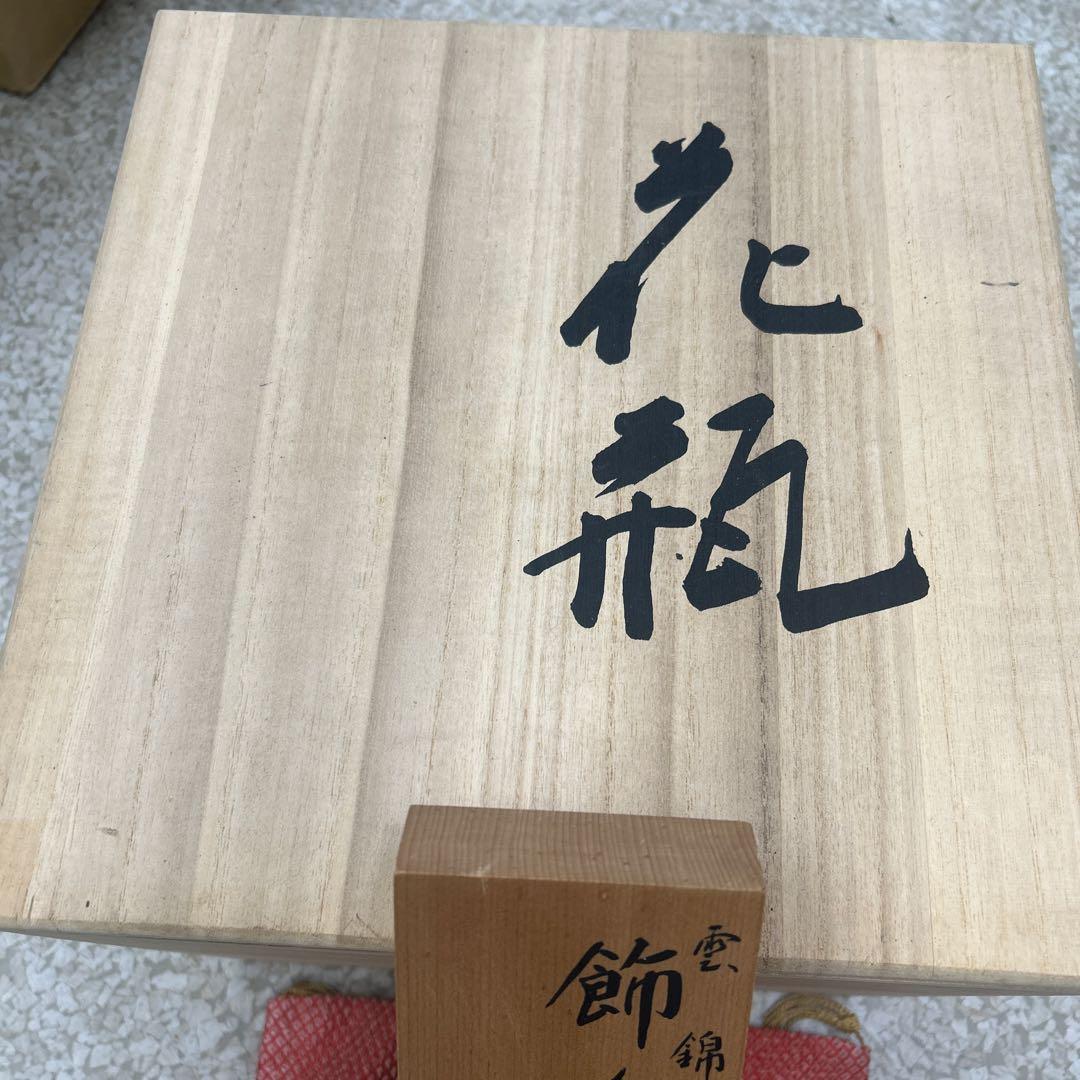 花瓶
雲錦
飾